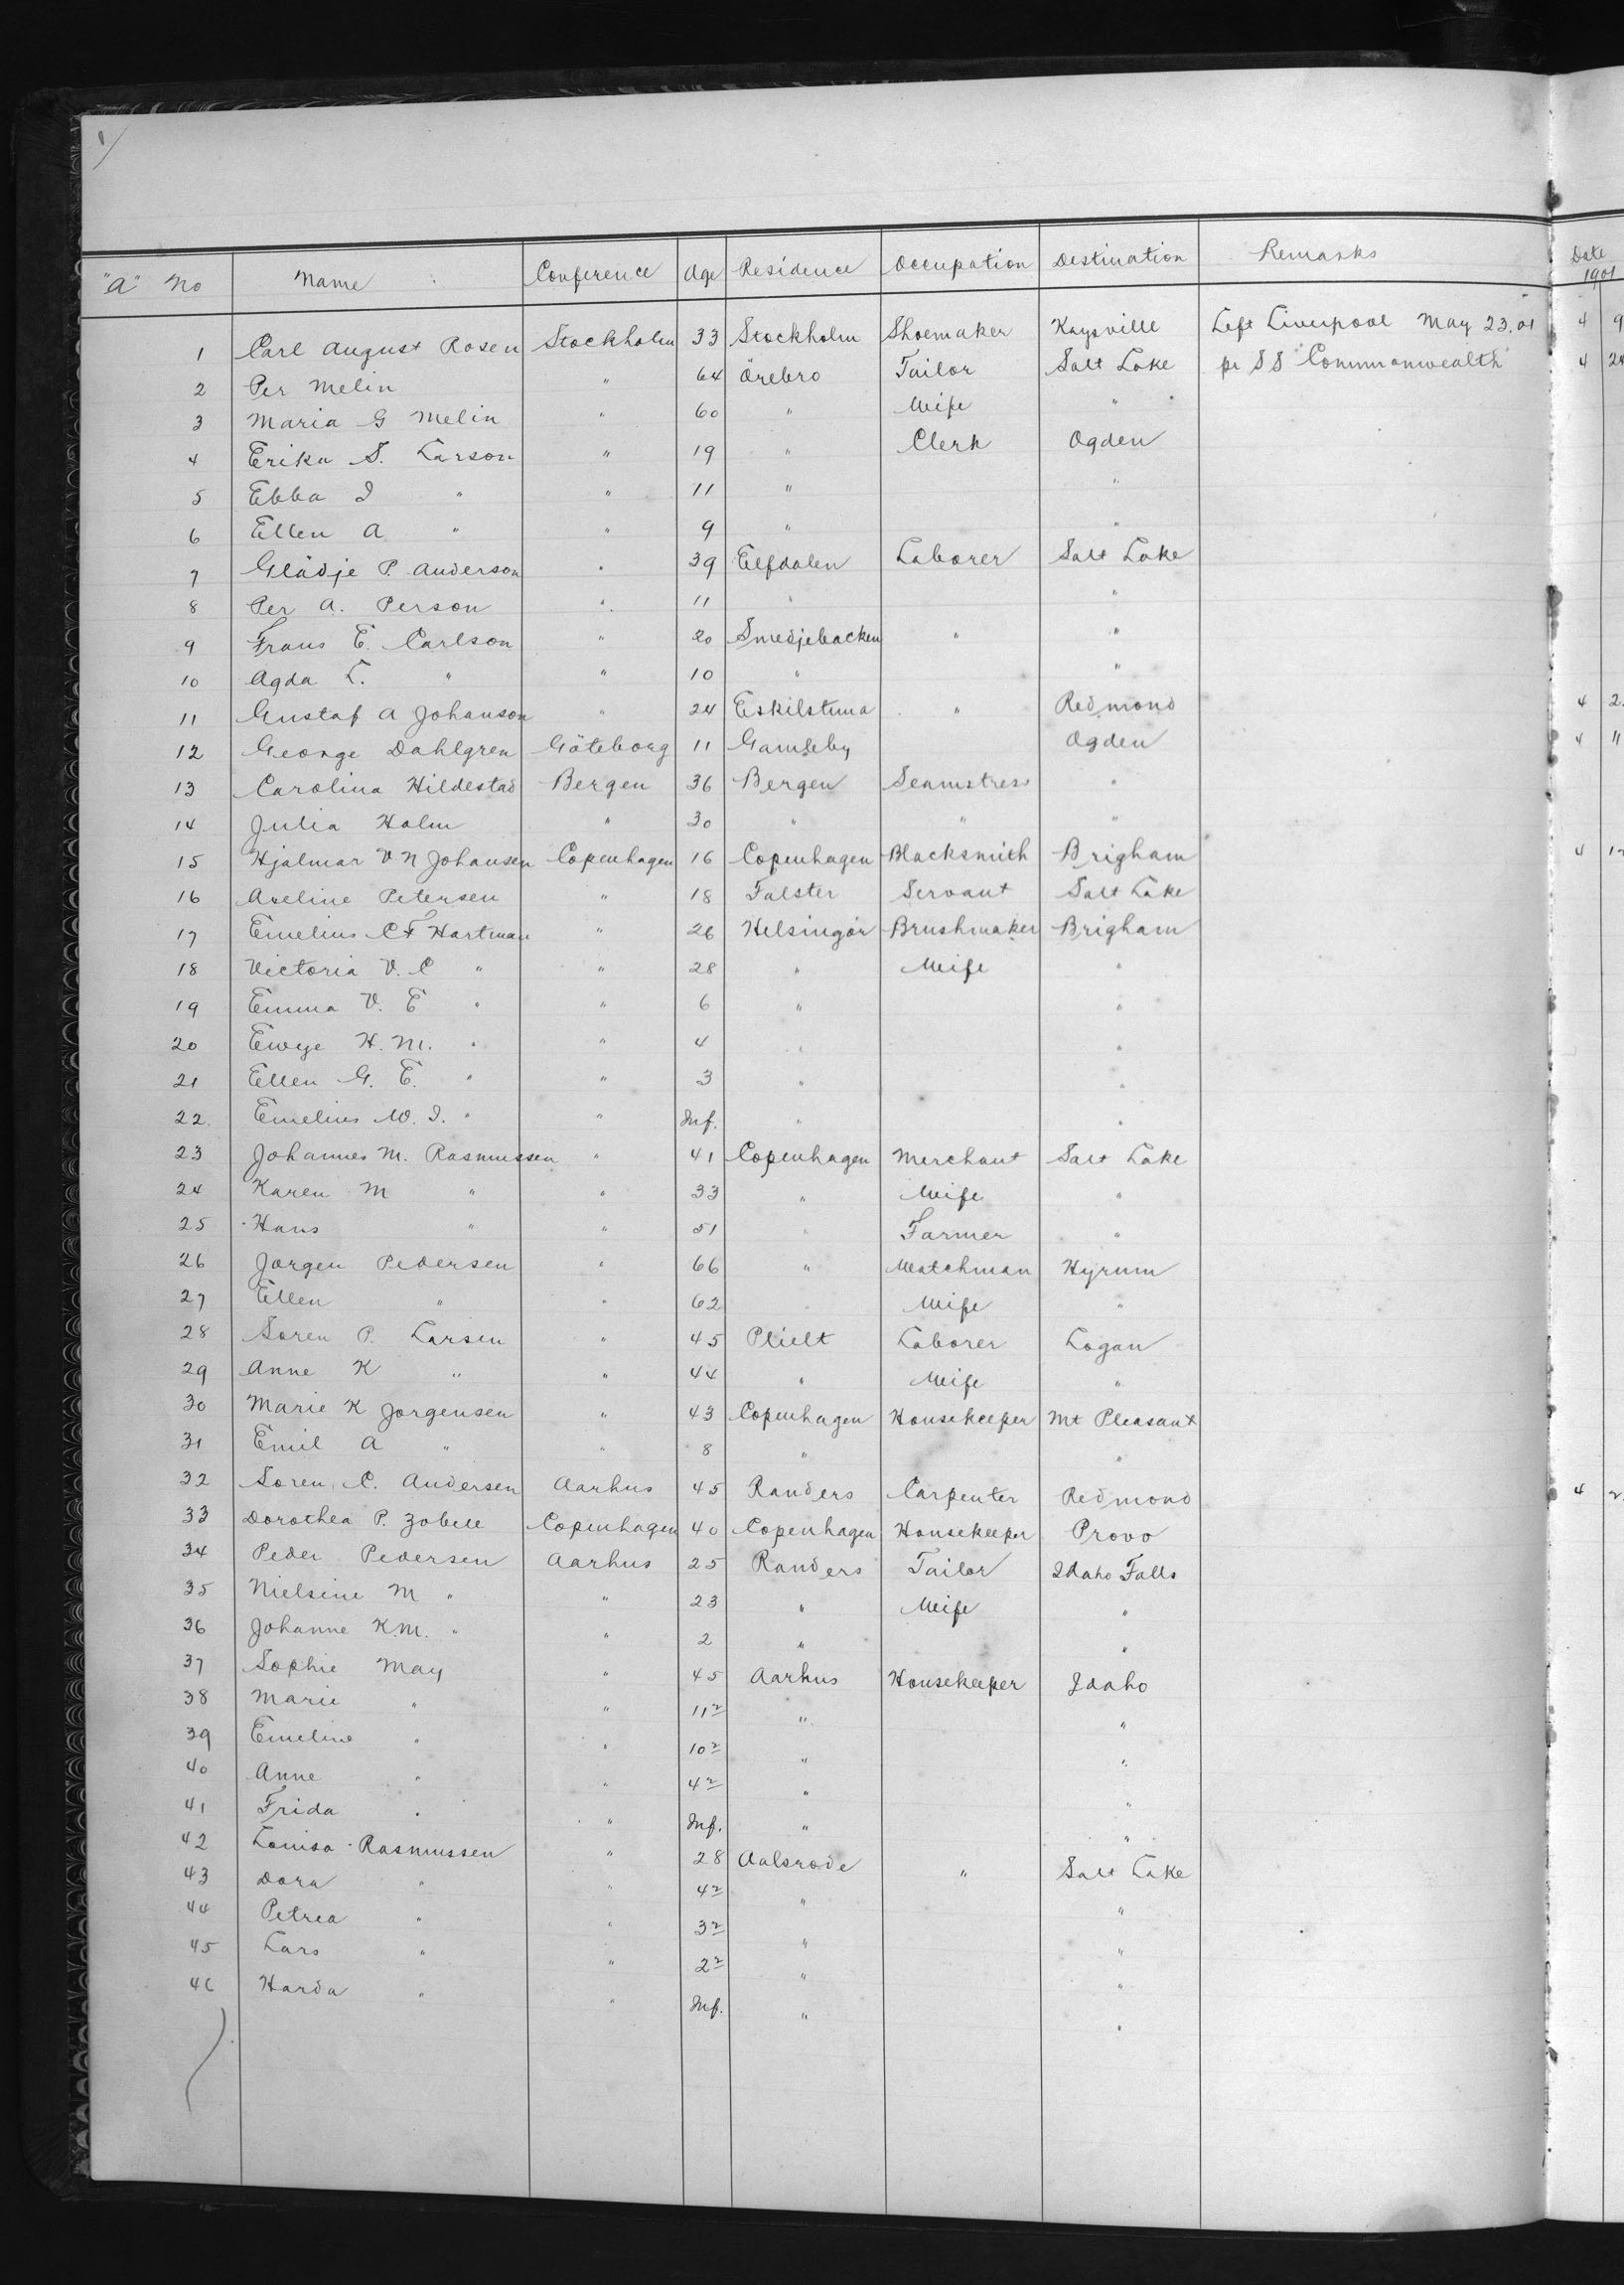 1/
"A" No Name Conference Age Residence Occupation Destination Remarks Date 1901
1 Carl August Rosen Stockholm 33 Stockholm Shoemaker Kaysville Left Liverpool May 23. 01 4 9
2 Per Melin " 64 Örebro Tailor Salt Lake pr SS "Commonwealth" 4 24
3 Maria G Melin " 60 " Wife "
4 Erika S. Larson " 19 " Clerk Ogden
5 Ebba I " " 11 " "
6 Ellen A " " 9 " "
7 Glädje P. Anderson " 39 Elfdalen Laborer Salt Lake
8 Per A. Person " 11 " "
9 Frans E. Carlson " 20 Smedjebacken " "
10 Agda L. " " 10 " "
11 Gustaf A Johanson " 24 Eskilstuna " Redmond 4 2
12 George Dahlgren Göteborg 11 Gamleby Ogden 4 11
13 Carolina Hildestad Bergen 36 Bergen Seamstress "
14 Julia Holm " 30 " " "
15 Hjalmar V N Johansen Copenhagen 16 Copenhagen Blacksmith Brigham 4
16 Axeline Petersen " 18 Falster Servant Salt Lake
17 Emelius C F Hartman " 26 Helsingör Brushmaker Brigham
18 Victoria V. C " " 28 " Wife "
19 Emma V. E " " 6 " "
20 H. M. " " 4 " "
21 Ellen G. E. " " 3 " "
22 Emelius W. I. " " Inf. " "
23 Johannes M. Rasmussen " 41 Copenhagen Merchant Salt Lake
24 Karen M " " 33 " Wife "
25 Hans " " 51 " Farmer "
26 Jorgen Pedersen " 66 " Watchman Hyrum
27 Ellen " " 62 " Wife "
28 Soren P. Larsen " 45 Plielt Laborer Logan
29 Anne K " " 44 " Wife "
30 Marie K Jorgensen " 43 Copenhagen Housekeeper Mt Pleasant
31 Emil A " " 8 " "
32 Soren C. Andersen Aarhus 45 Randers Carpenter Redmond 4 2
33 Dorothea P. Zobell Copenhagen 40 Copenhagen Housekeeper Provo
34 Peder Pedersen Aarhus 25 Randers Tailor Idaho Falls
35 Nielsine M " " 23 " Wife "
36 Johanne K.M. " " 2 " "
37 Sophie May " 45 Aarhus Housekeeper Idaho
38 Marie " " 11 2 " "
39 Emeline " " 10 2 " "
40 Anne " " 4 2 " "
41 Frida " " Inf. " "
42 Louisa Rasmussen " 28 Aalsrode " Salt Lake
43 Dora " " 4 2 " "
44 Petrea " " 3 2 " "
45 Lars " " 2 2 " "
46 Harda " " Inf. " "